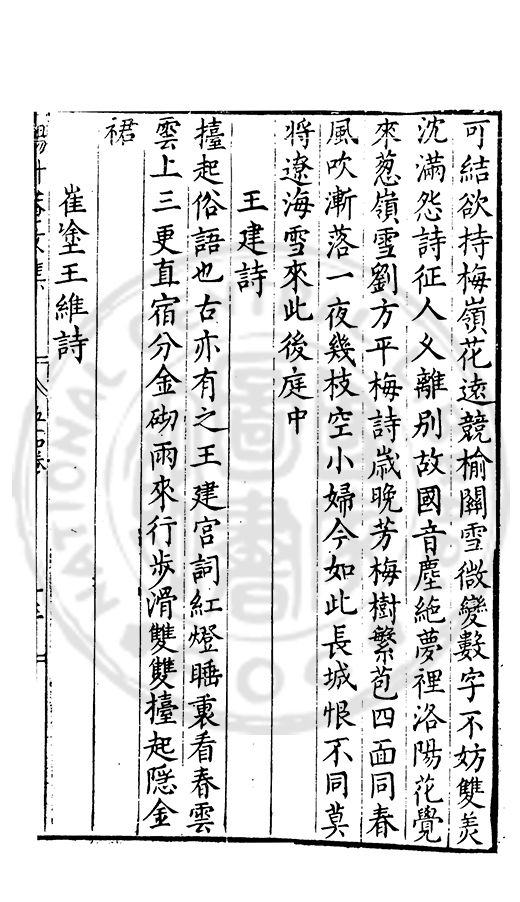 可結欲持梅嶺花遠競榆關雪微變數字不妨雙羙
沈滿怨詩征人久離别故國音塵絶夢裡洛陽花覺
來葱嶺雪劉方平梅詩歲晚芳梅樹繁苞四面同春
風吹漸落一夜幾枝空小婦今如此長城恨不同莫
將遼海雪來此後庭中
王建詩
擡起俗語也古亦有之王建宮詞紅燈睡裏看春雲
雲上三更直宿分金砌雨來行步滑雙雙擡起隱金
裙
崔塗王維詩
NATIONAL
圖書